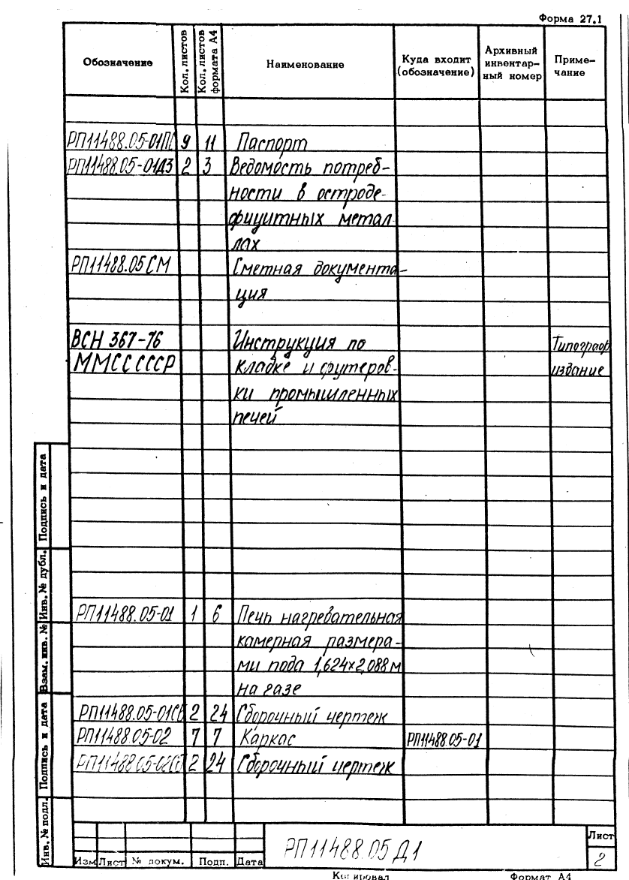 Форма 27.1
Обозначение Кол. листов Кол. листов формата А4 Наименование Куда входит (обозначение) Архивный инвентарный номер Примечание
РП11488.05-01ПС 9 11 Паспорт
РП11488.05-01Д3 2 3 Ведомость потреб-
ности в остроде-
фицитных метал-
лах
РП11488.05СМ Сметная документа-
ция
ВСН 367-76 Инструкция по Типограф.
ММСС СССР кладке и футеров- издание
ки промышленных
печей
РП11488.05-01 1 6 Печь нагревательная
камерная размера-
ми пода 1,624×2,088м
на газе
РП11488.05-01СБ 2 24 Сборочный чертеж
РП11488.05-02 7 7 Каркас РП11488.05-01
РП11488.05-02СБ 2 24 Сборочный чертеж
Инв. № подл. Подпись и дата Взам. инв. № Инв. № дубл. Подпись и дата
РП11488.05 Д1
Лист
2
Изм Лист № докум. Подп. Дата
Копировал Формат А4